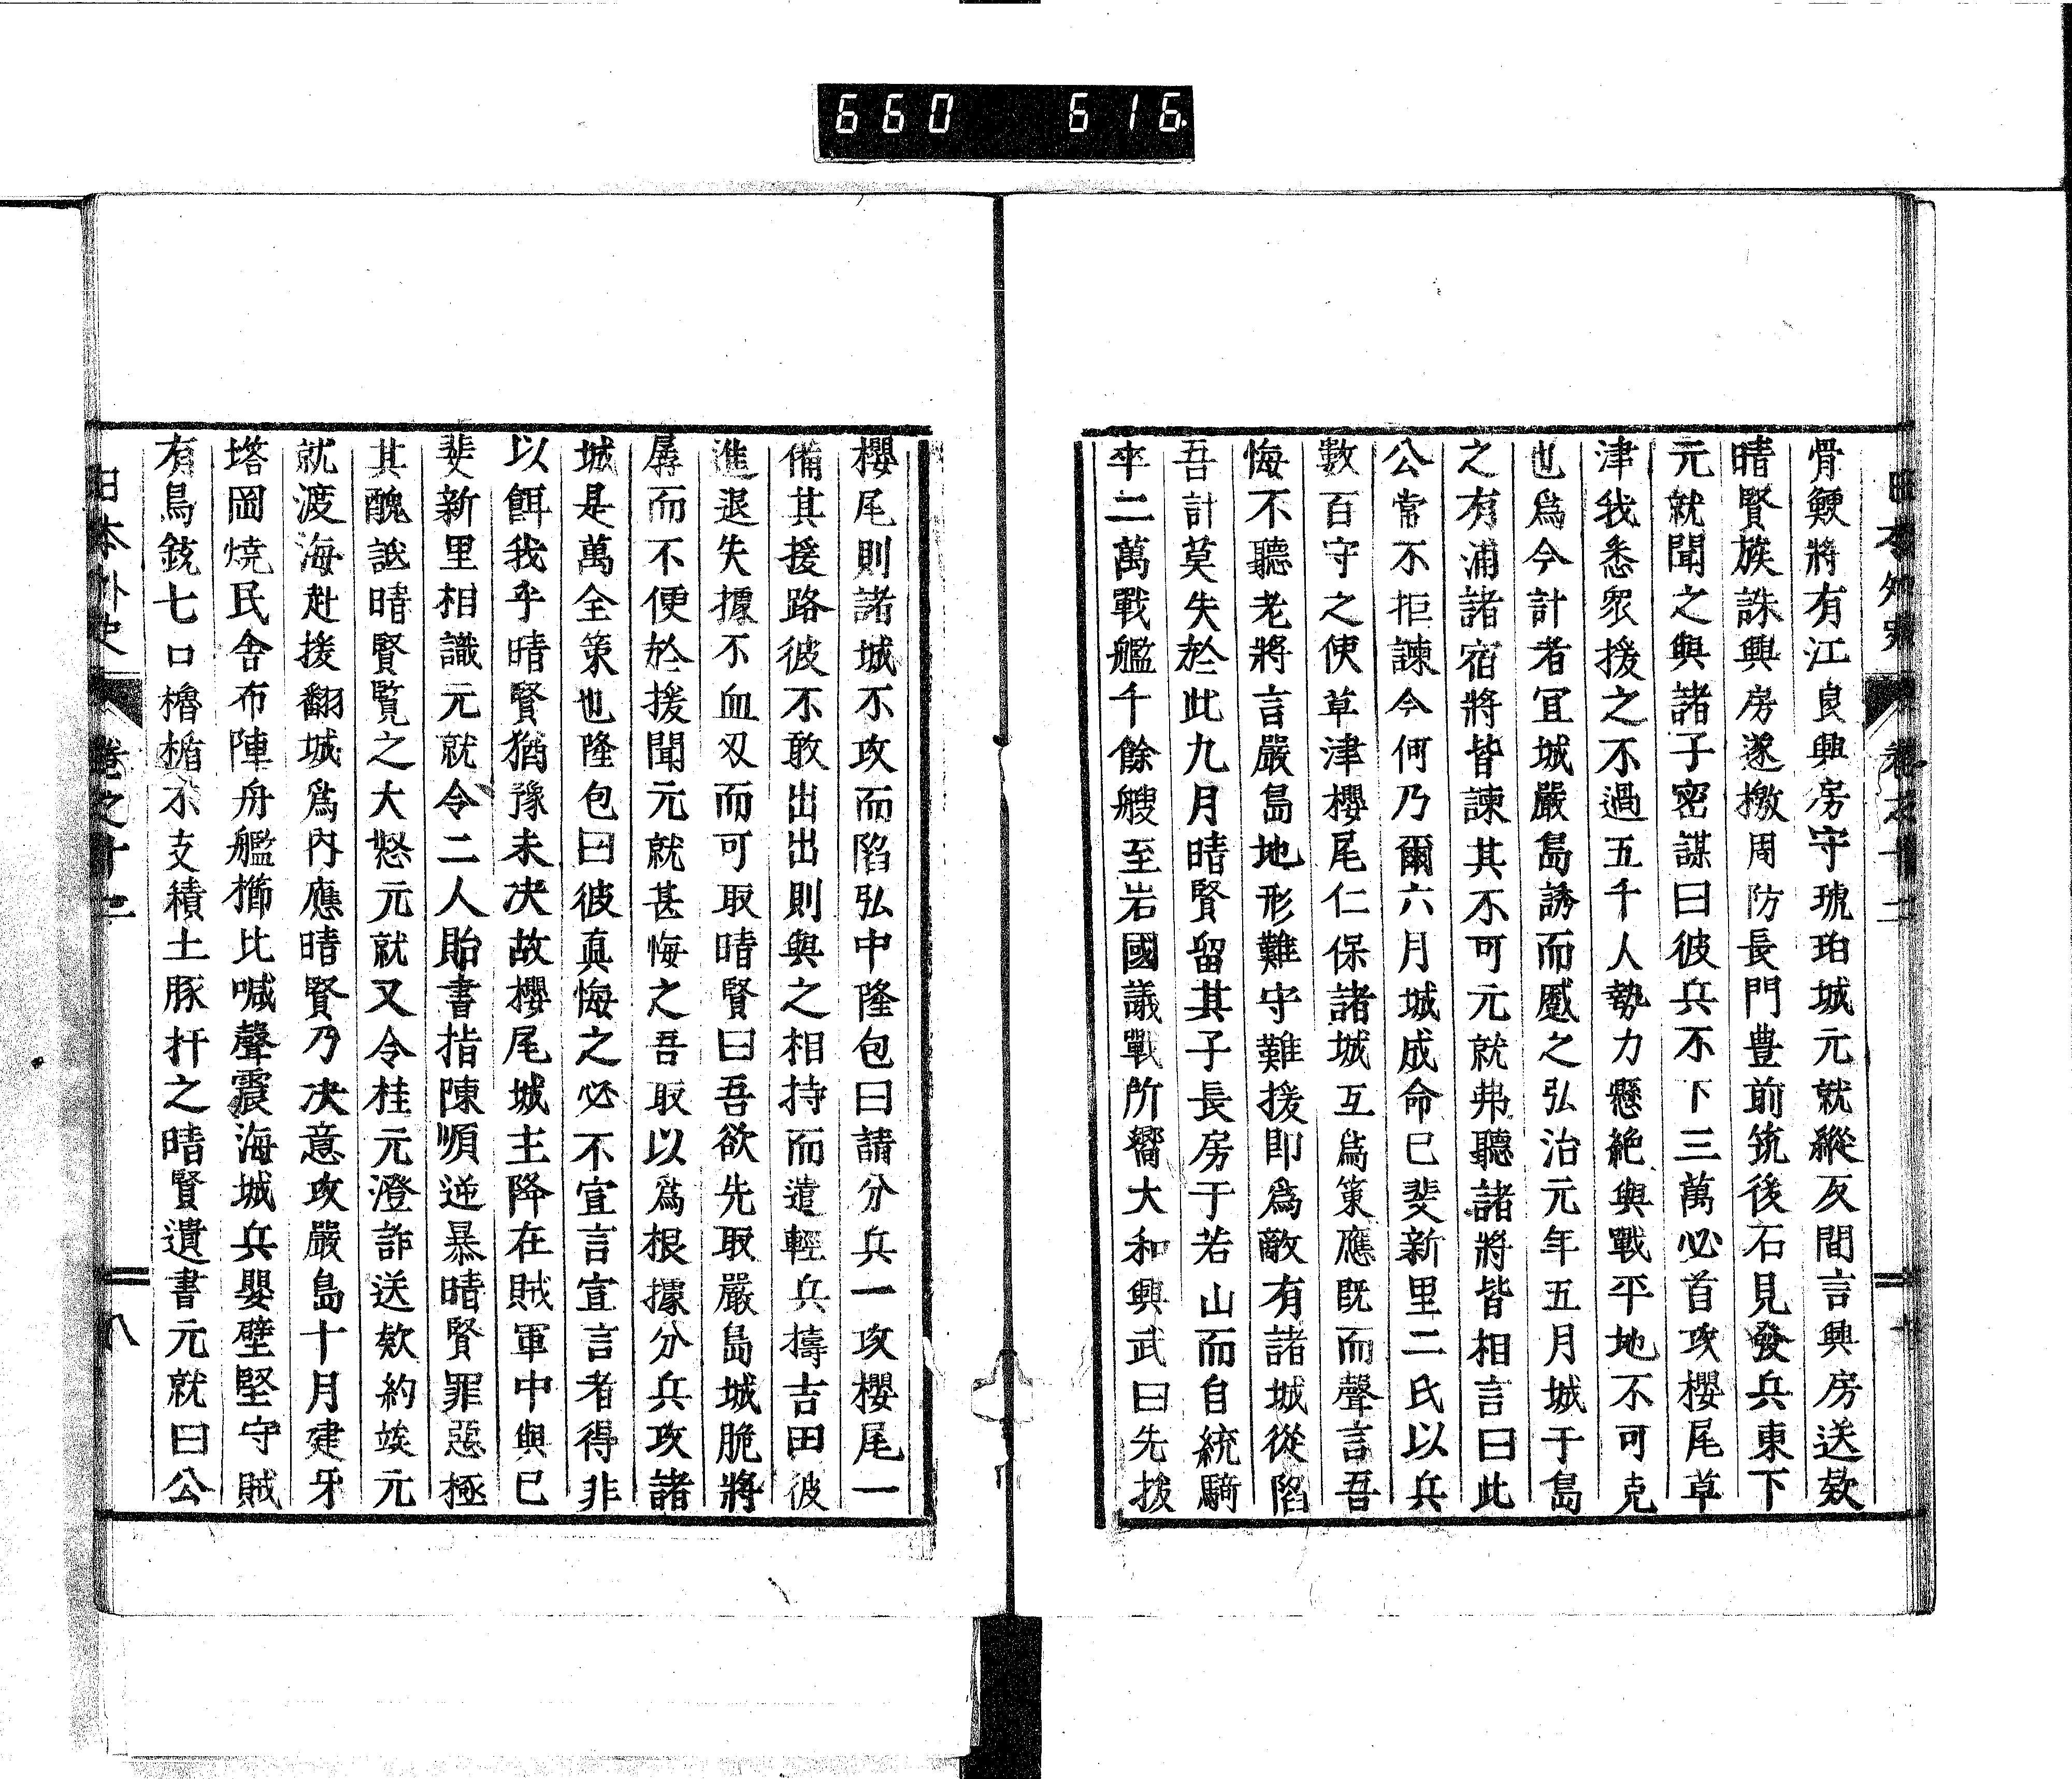 660 616
骨鯁將有江良興房守琥珀城元就縱反間言興房送欵
晴賢族誅興房遂檄周防長門豊前筑後石見發兵東下
元就聞之與諸子密謀曰彼兵不下三萬必首攻櫻尾草
津我悉眾援之不過五千人勢力懸絶與戰平地不可克
也爲今計者宜城嚴島誘而蹙之弘治元年五月城于島
之有浦諸宿將皆諫其不可元就弗聽諸將皆相言曰此
公常不拒諫今何乃爾六月城成命已斐新里二氏以兵
數百守之使草津櫻尾仁保諸城互爲策應既而聲言吾
悔不聽老將言嚴島地形難守難援即爲敵有諸城從陷
吾計莫失於此九月晴賢留其子長房于若山而自統騎
卒二萬戰艦千餘艘至岩國議戰所嚮大和興武曰先拔
櫻尾則諸城不攻而陷弘中隆包曰請分兵一攻櫻尾一
備其援路彼不敢出出則與之相持而遣輕兵擣吉田彼
進退失據不血刄而可取晴賢曰吾欲先取嚴島城脆將
孱而不便於援聞元就甚悔之吾取以爲根據分兵攻諸
城是萬全策也隆包曰彼真悔之必不宣言宣言者得非
以餌我乎晴賢猶豫未决故櫻尾城主降在賊軍中與已
斐新里相識元就令二人貽書指陳順逆暴晴賢罪惡極
其醜詆晴賢覧之大怒元就又令桂元澄詐送欵約竢元
就渡海赴援翻城爲内應晴賢乃决意攻嚴島十月建牙
塔岡燒民舍布陣舟艦櫛比喊聲震海城兵嬰壁堅守賊
有鳥銃七口櫓楯不支積土豚扞之晴賢遺書元就曰公
日本外史 卷之十二 八